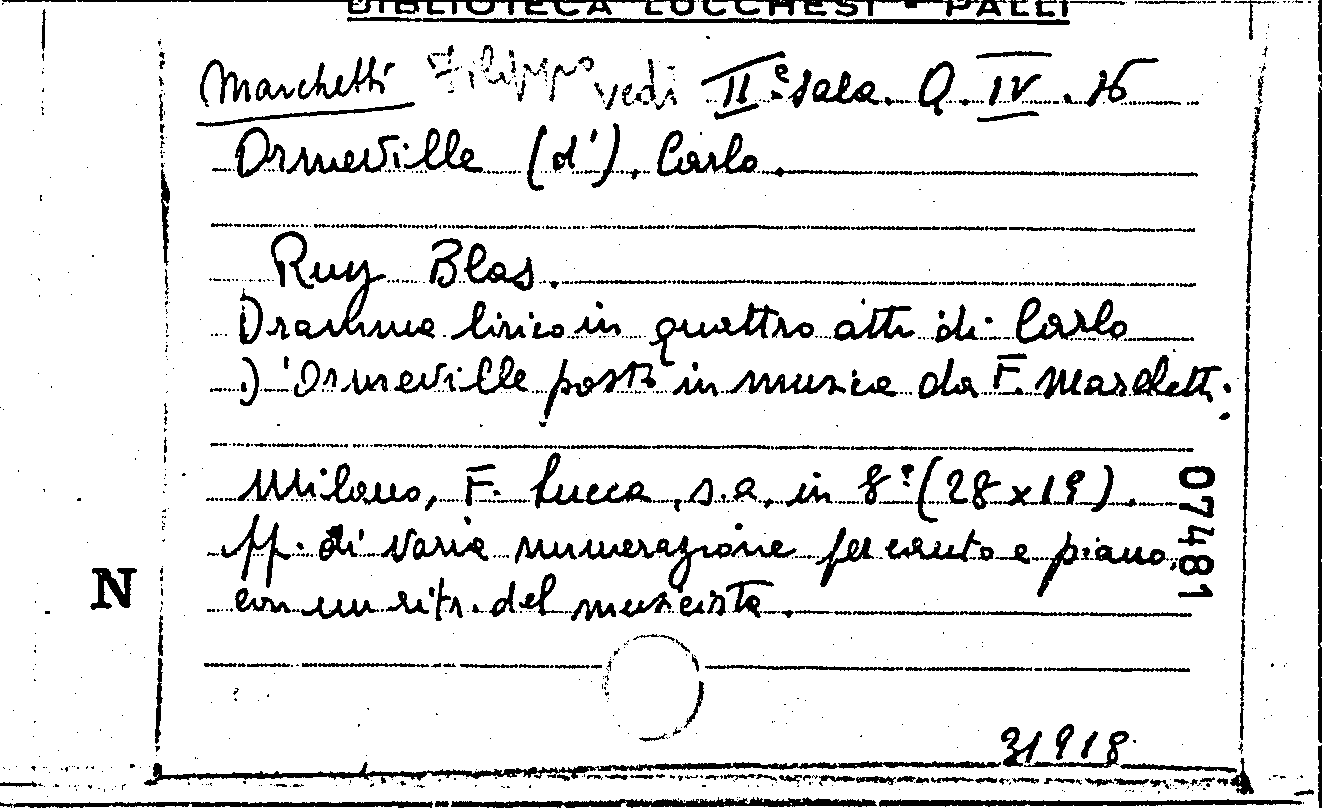 BIBLIOTECA LUCCHESI - PALLI
Marchetti Filippo vedi IIª sala. Q. IV. 16
Ormeville (d'). Carlo.
Ruy Blas.
Dramma lirico in quattro atti di Carlo
D'Ormeville posto in musica da F. Marchetti.
Milano, F. Lucca, s.a. in 8º (28 x 19).
ff. di varia numerazione per canto e piano,
con un ritr. del musicista.
07481
N
31918